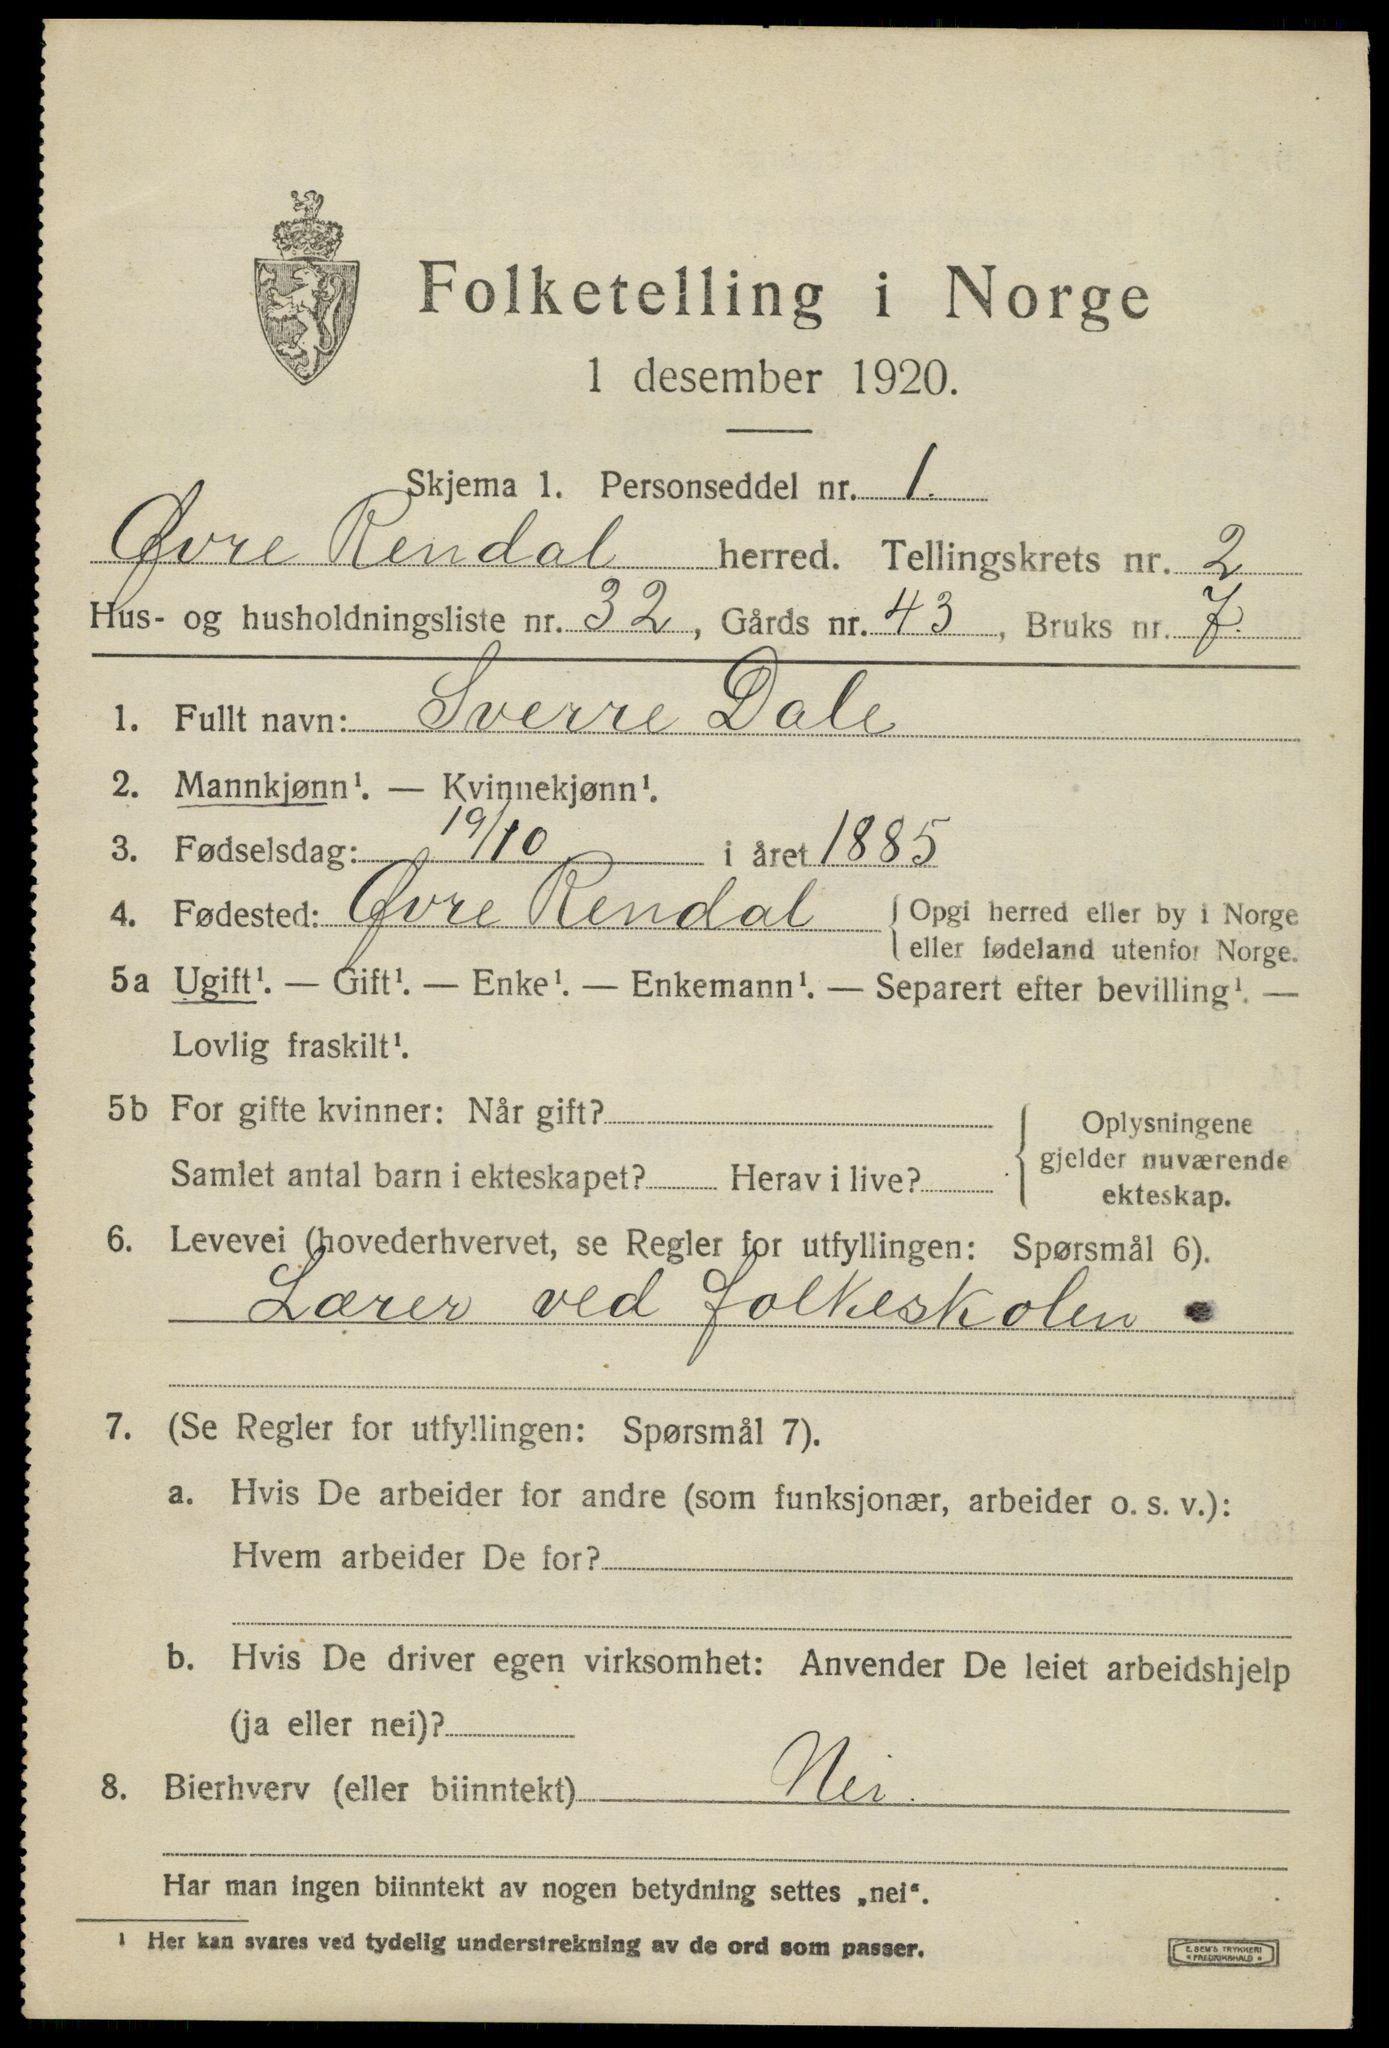 Folketelling i Norge
1 desember 1920.
Skjema 1. Personseddel nr. 1.
Øvre Rendal herred. Tellingskrets nr. 2
Hus- og husholdningsliste nr. 32, Gårds nr. 43, Bruks nr. 7.
1. Fullt navn: Sverre Dale
2. Mannkjønn¹. — Kvinnekjønn¹.
3. Fødselsdag: 19/10 i året 1885
4. Fødested: Øvre Rendal { Opgi herred eller by i Norge
eller fødeland utenfor Norge.
5a Ugift¹. — Gift¹. — Enke¹. — Enkemann¹. — Separert efter bevilling¹. —
Lovlig fraskilt¹.
5b For gifte kvinner: Når gift?
Samlet antal barn i ekteskapet? Herav i live?
{ Oplysningene
gjelder nuværende
ekteskap.
6. Levevei (hovederhvervet, se Regler for utfyllingen: Spørsmål 6).
Lærer ved folkeskolen
7. (Se Regler for utfyllingen: Spørsmål 7).
a. Hvis De arbeider for andre (som funksjonær, arbeider o. s. v.):
Hvem arbeider De for?
b. Hvis De driver egen virksomhet: Anvender De leiet arbeidshjelp
(ja eller nei)?
8. Bierhverv (eller biinntekt) Nei.
Har man ingen biinntekt av nogen betydning settes „nei“.
¹ Her kan svares ved tydelig understrekning av de ord som passer.
E. SEM'S TRYKKERI
• FREDRIKSHALD •